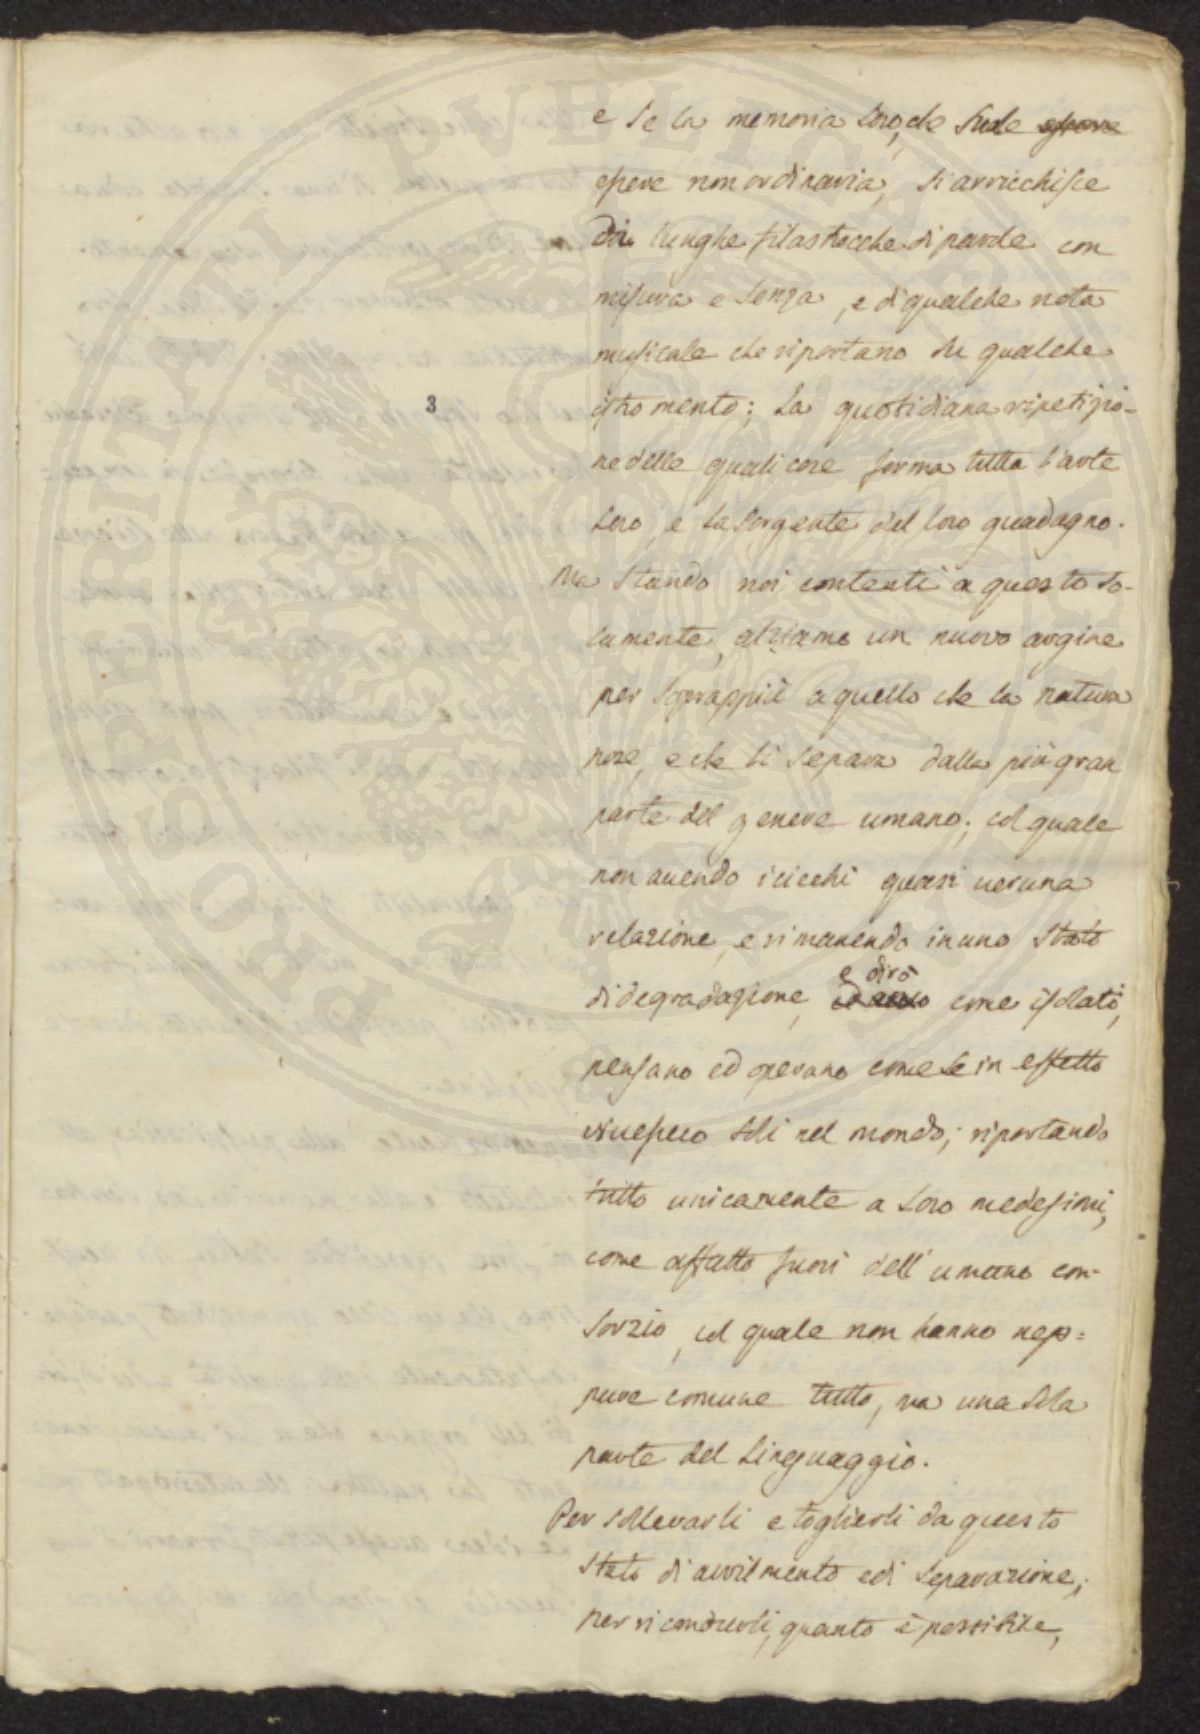 e se la memoria loro, che suole essere
essere non ordinaria, si arricchisce
di lunghe filastrocche di parole con
misura e senza, e di qualche nota
musicale che riportano su qualche
3
istromento; La quotidiana ripetizio-
ne delle quali cose forma tutta l'arte
loro, e la sorgente del loro guadagno.
Ma stando noi contenti a questo so-
lamente, alziamo un nuovo argine
per soprappiù a quello che la natura
pose, e che li separa dalla più gran
parte del genere umano; col quale
non avendo i ciechi quasi veruna
relazione, e rimanendo in uno stato
e dirò
di degradazione, come isolati,
pensano ed operano come se in effetto
vivessero soli nel mondo; riportando
tutto unicamente a loro medesimi,
come affatto fuori dell'umano con-
sorzio, col quale non hanno nep=
pure comune tutto, ma una sola
parte del Linguaggio.
Per sollevarli e toglierli da questo
stato di avvilmento e di separazione;
per ricondurli, quanto è possibile,
PROSPERITATI PVBLICAE